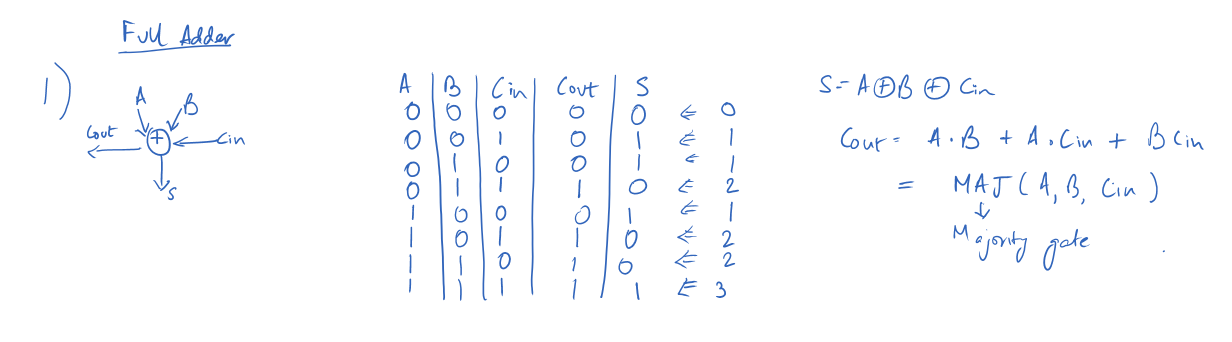 Full Adder
1)
A
B
Cout
+
Cin
S
A B Cin Cout S
0 0 0 0 0 ⇐ 0
0 0 1 0 1 ⇐ 1
0 1 0 0 1 ⇐ 1
0 1 1 1 0 ⇐ 2
1 0 0 0 1 ⇐ 1
1 0 1 1 0 ⇐ 2
1 1 0 1 0 ⇐ 2
1 1 1 1 1 ⇐ 3
S = A ⊕ B ⊕ Cin
Cout = A . B + A . Cin + B Cin
= MAJ ( A, B, Cin )
↓
Majority gate